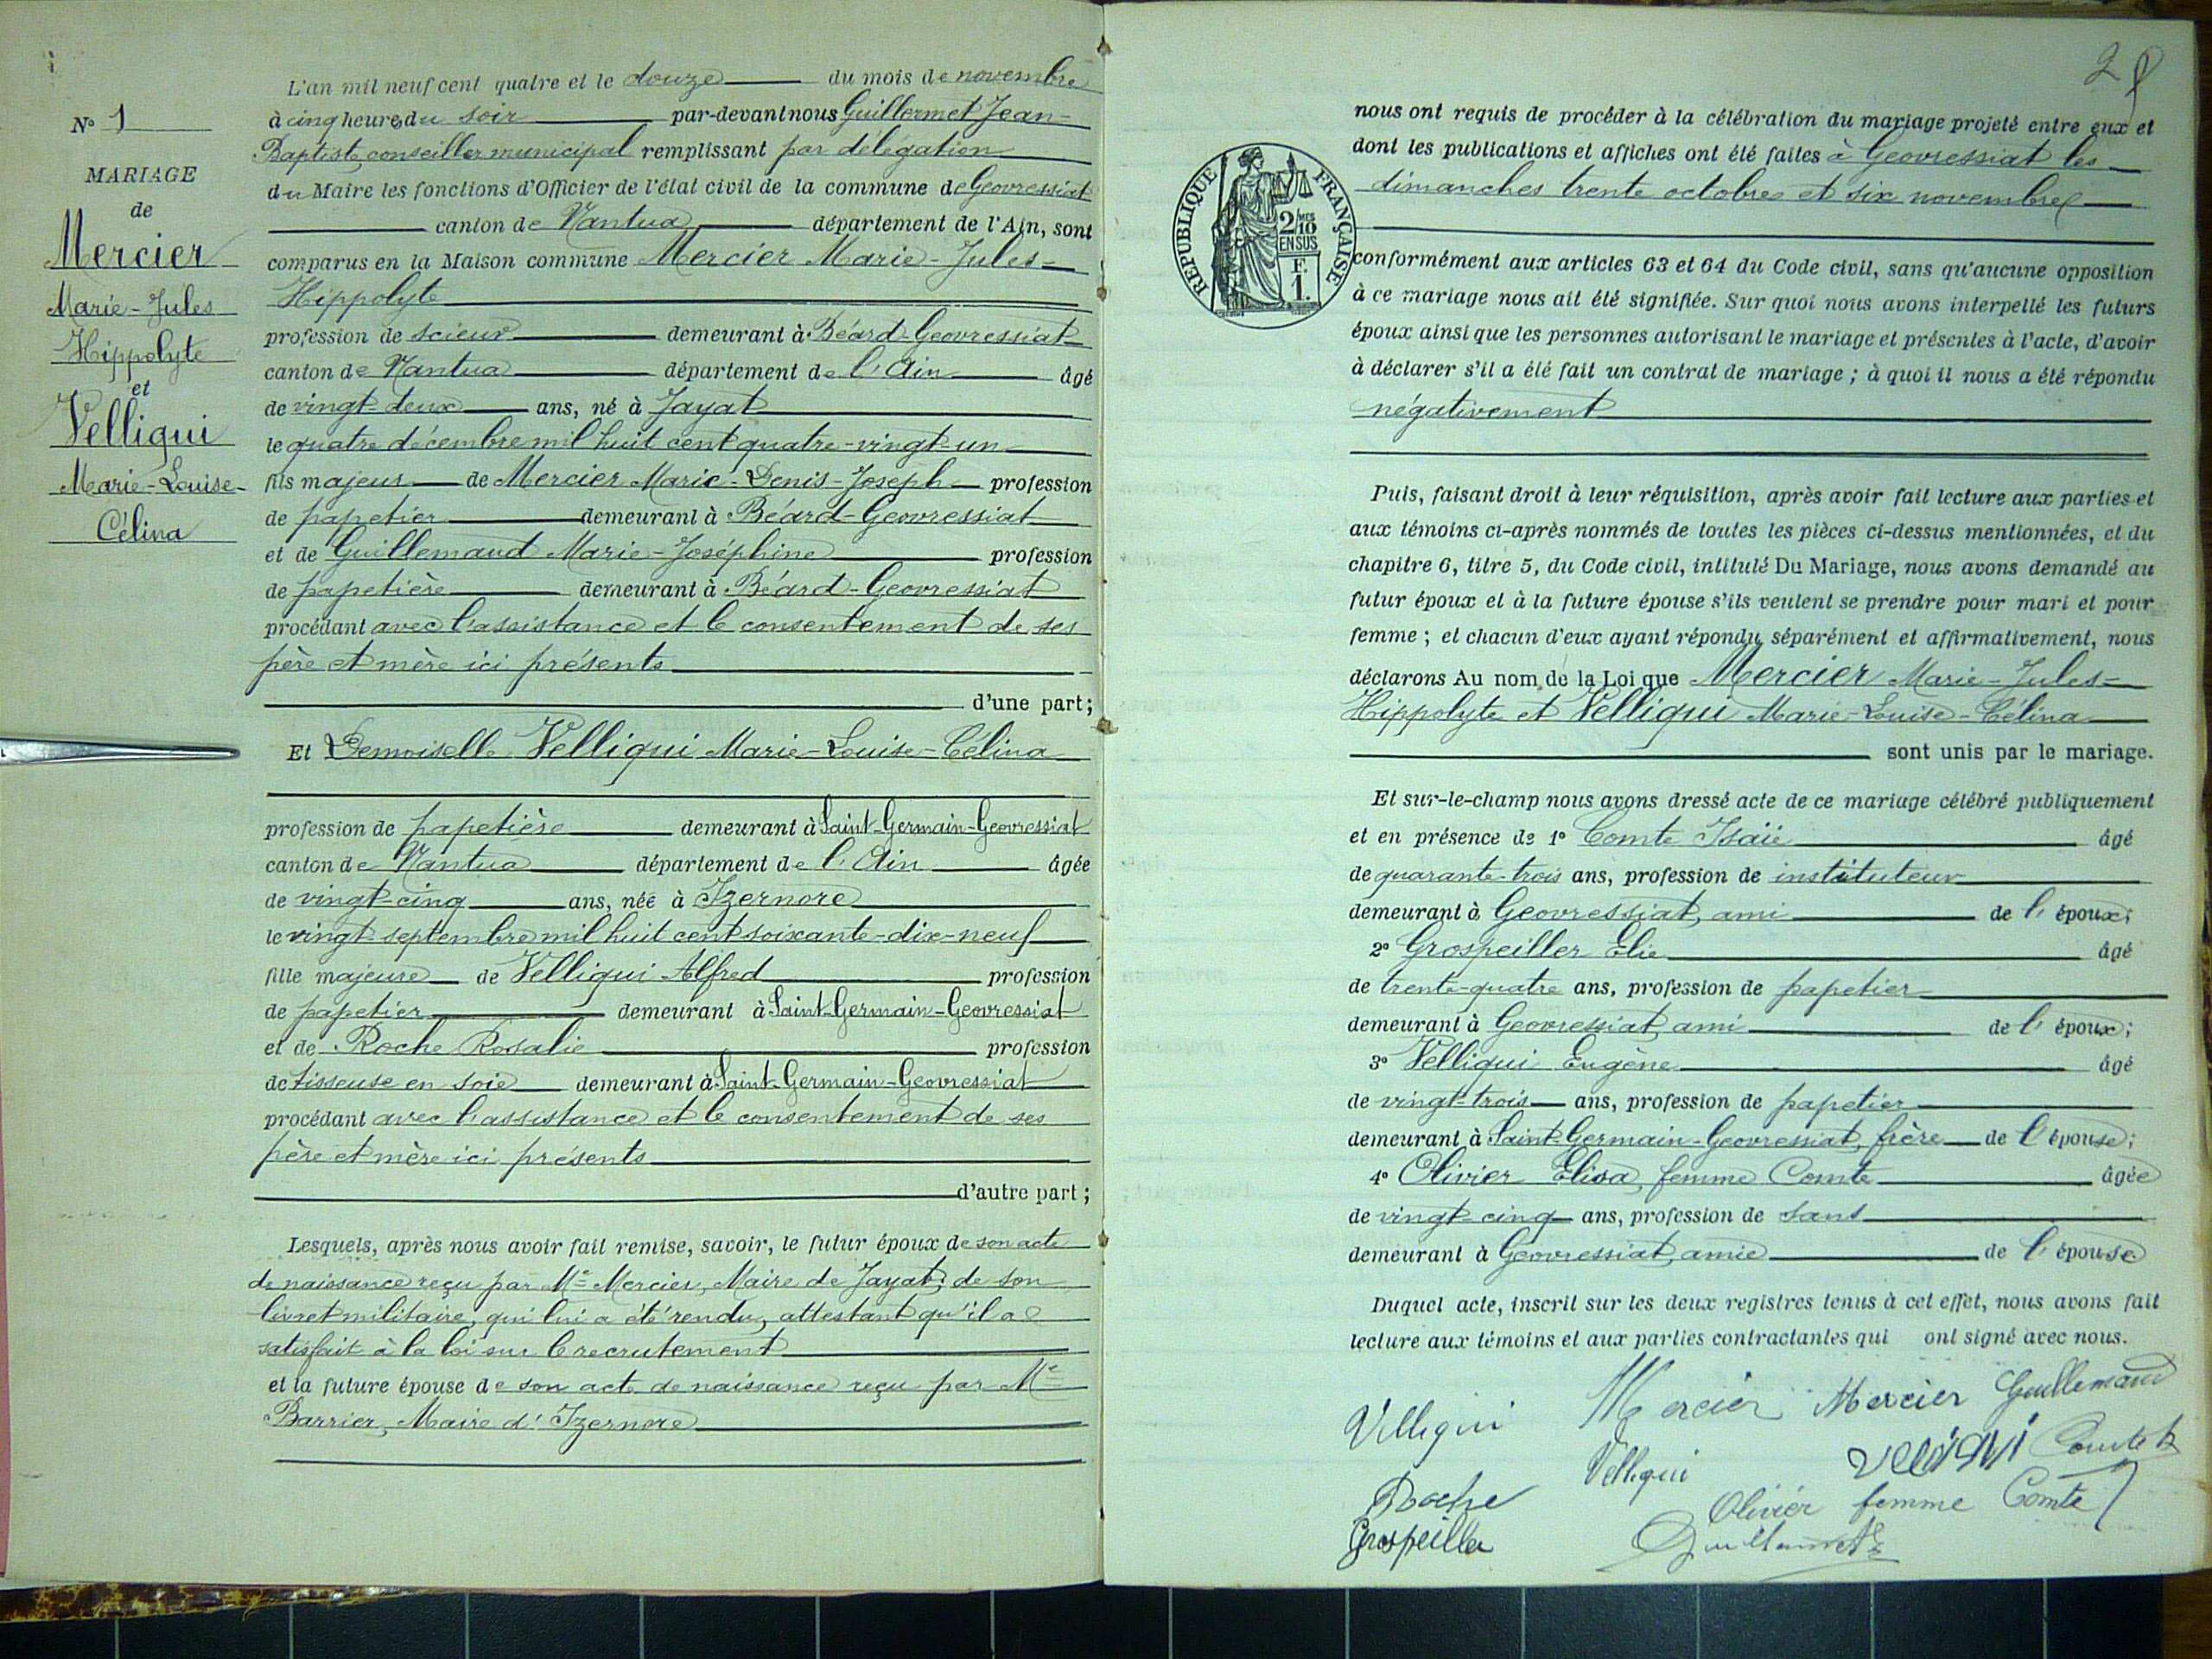 N° 1
MARIAGE
de
Mercier
Marie-Jules
Hippolyte
et
Velliqui
Marie-Louise-
Célina
L'an mil neuf cent quatre et le douze du mois de novembre
à cinq heures du soir par-devant nous Guillermet Jean-
Baptiste, conseiller municipal remplissant par délégation
du Maire les fonctions d'Officier de l'état civil de la commune de Geovressiat
canton de Nantua département de l'Ain, sont
comparus en la Maison commune Mercier Marie-Jules-
Hippolyte
profession de scieur demeurant à Béard-Geovressiat
canton de Nantua département de l'Ain âgé
de vingt-deux ans, né à Jayat
le quatre décembre mil huit cent quatre-vingt-un
fils majeur de Mercier Marie-Denis-Joseph profession
de papetier demeurant à Béard-Geovressiat
et de Guillemaud Marie-Joséphine profession
de papetière demeurant à Béard-Geovressiat
procédant avec l'assistance et le consentement de ses
père et mère ici présents
d'une part;
Et Demoiselle Velliqui Marie-Louise-Célina
profession de papetière demeurant à Saint-Germain-Geovressiat
canton de Nantua département de l'Ain âgée
de vingt-cinq ans, née à Izernore
le vingt septembre mil huit cent soixante-dix-neuf
fille majeure de Velliqui Alfred profession
de papetier demeurant à Saint-Germain-Geovressiat
et de Roche Rosalie profession
de tisseuse en soie demeurant à Saint-Germain-Geovressiat
procédant avec l'assistance et le consentement de ses
père et mère ici présents
d'autre part;
Lesquels, après nous avoir fait remise, savoir, le futur époux de son acte
de naissance reçu par Me Mercier, Maire de Jayat; de son
livret militaire, qui lui a été rendu, attestant qu'il a
satisfait à la loi sur le recrutement
et la future épouse de son acte de naissance reçu par Me
Barrier, Maire d'Izernore
2
nous ont requis de procéder à la célébration du mariage projeté entre eux et
dont les publications et affiches ont été faites à Geovressiat les
dimanches trente octobre et six novembre
REPUBLIQUE FRANÇAISE
2/10 MES
EN SUS
F.
1.
conformément aux articles 63 et 64 du Code civil, sans qu'aucune opposition
à ce mariage nous ait été signifiée. Sur quoi nous avons interpellé les futurs
époux ainsi que les personnes autorisant le mariage et présentes à l'acte, d'avoir
à déclarer s'il a été fait un contrat de mariage; à quoi il nous a été répondu
négativement
Puis, faisant droit à leur réquisition, après avoir fait lecture aux parties et
aux témoins ci-après nommés de toutes les pièces ci-dessus mentionnées, et du
chapitre 6, titre 5, du Code civil, intitulé Du Mariage, nous avons demandé au
futur époux et à la future épouse s'ils veulent se prendre pour mari et pour
femme; et chacun d'eux ayant répondu séparément et affirmativement, nous
déclarons Au nom de la Loi que Mercier Marie-Jules-
Hippolyte et Velliqui Marie-Louise-Célina
sont unis par le mariage.
Et sur-le-champ nous avons dressé acte de ce mariage célébré publiquement
et en présence de 1° Comte Isaïe âgé
de quarante-trois ans, profession de instituteur
demeurant à Geovressiat, ami de l'époux;
2° Grospeiller Elie âgé
de trente-quatre ans, profession de papetier
demeurant à Geovressiat, ami de l'époux;
3° Velliqui Eugène âgé
de vingt-trois ans, profession de papetier
demeurant à Saint-Germain-Geovressiat, frère de l'épouse;
4° Olivier Elisa, femme Comte âgée
de vingt-cinq ans, profession de sans
demeurant à Geovressiat, amie de l'épouse
Duquel acte, inscrit sur les deux registres tenus à cet effet, nous avons fait
lecture aux témoins et aux parties contractantes qui ont signé avec nous.
Velliqui Mercier Mercier Guillemaud
Velliqui Velliqui Comte
Roche Olivier femme Comte
Grospeiller Guillermet